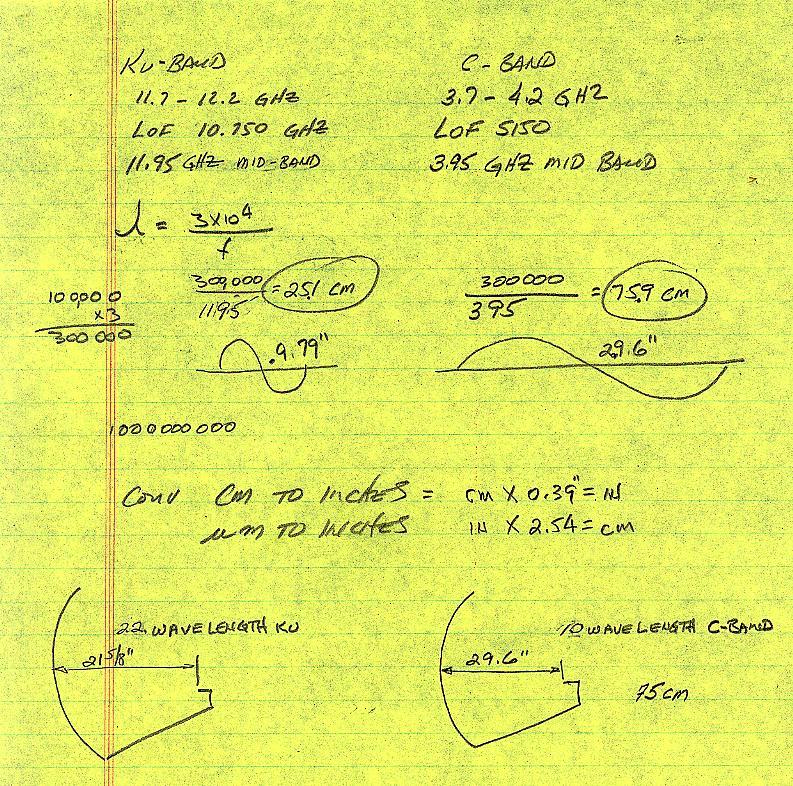 KU-BAND
11.7 - 12.2 GHZ
LOF 10.750 GHZ
11.95 GHZ MID-BAND
C - BAND
3.7 - 4.2 GHZ
LOF 5150
3.95 GHZ MID BAND
λ = 3X10⁴ / f
100,000
x3
300 000
300,000 / 11.95 = 25.1 cm
300000 / 395 = 75.9 cm
.9.79"
29.6"
1000000000
CONV CM TO INCHES = CM X 0.39" = IN
μm TO INCHES IN X 2.54 = CM
22 WAVELENGTH KU
21 5/8"
10 WAVELENGTH C-BAND
29.6"
75cm